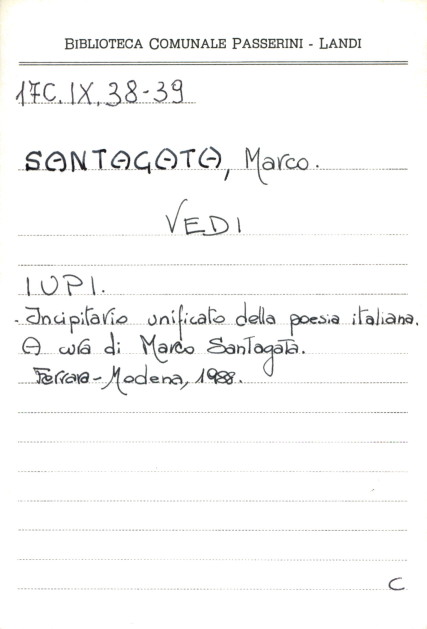 BIBLIOTECA COMUNALE PASSERINI - LANDI
17C.IX.38-39
SANTAGATA, Marco.
VEDI
IUPI.
- Incipitario unificato della poesia italiana.
A cura di Marco Santagata.
Ferrara - Modena, 1988.
C